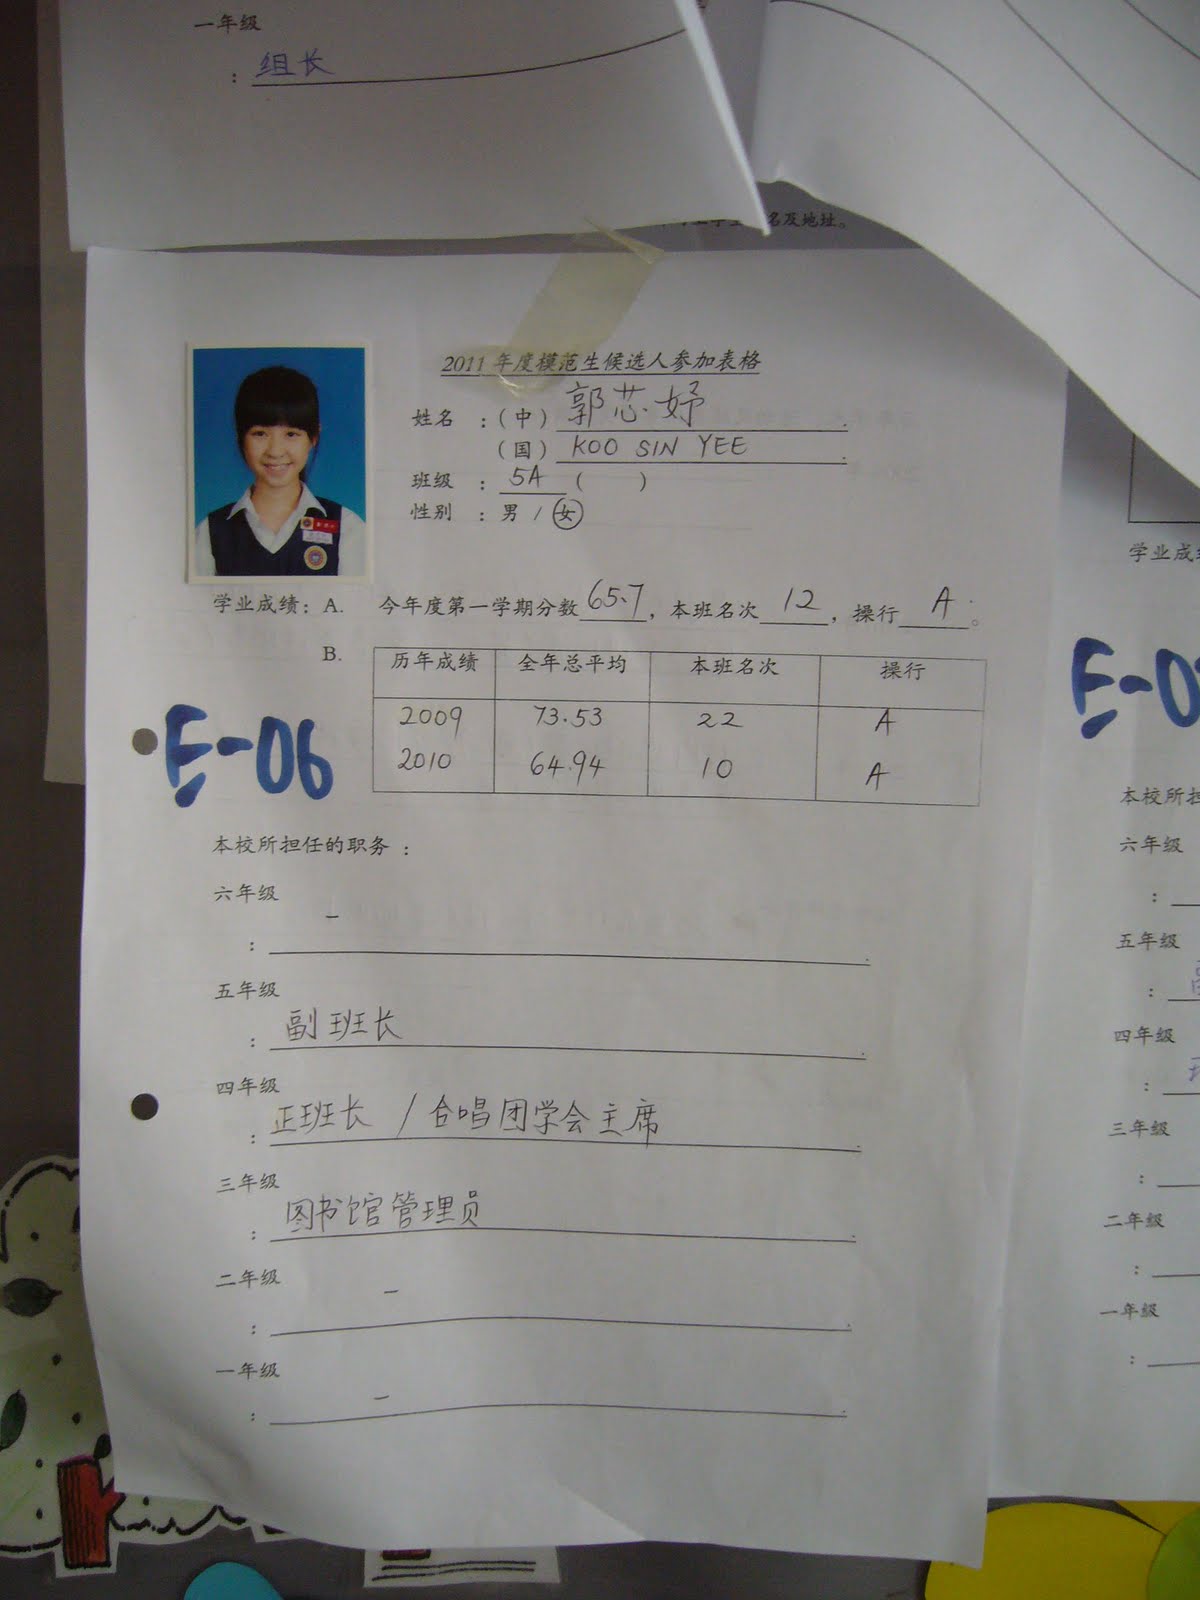 一年级
: 组长
名及地址。
2011 年度模范生候选人参加表格
姓名 :(中) 郭芯妤
(国) KOO SIN YEE
班级 : 5A ( )
性别 : 男 / 女
学业成绩: A. 今年度第一学期分数 65.7, 本班名次 12, 操行 A。
B.
历年成绩 全年总平均 本班名次 操行
2009 73.53 22 A
2010 64.94 10 A
E-06
本校所担任的职务 :
六年级
: –
五年级
: 副班长
四年级
: 正班长 / 合唱团学会主席
三年级
: 图书馆管理员
二年级
: –
一年级
: –
学业成
E-0
本校所
六年级
:
五年级
:
四年级
:
三年级
:
二年级
:
一年级
: